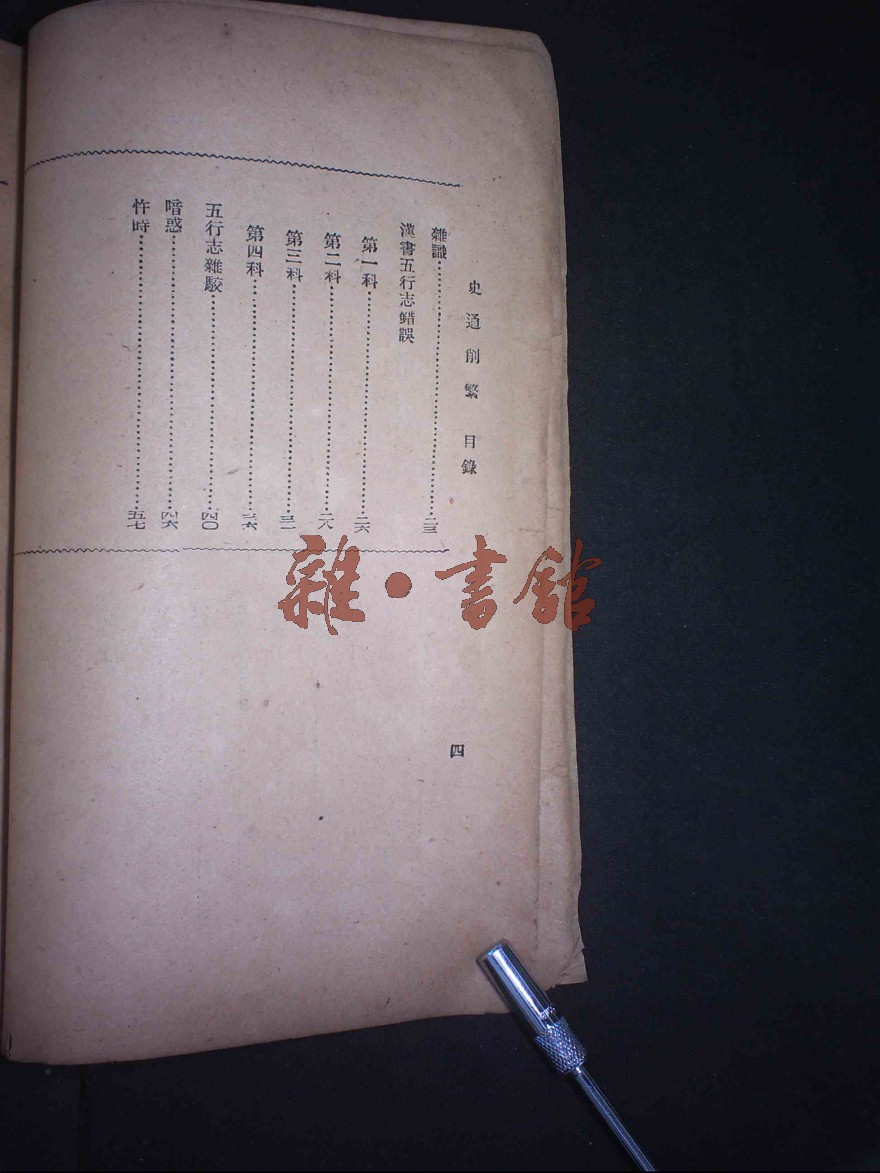 史通削繁 目錄
四
雜識……二三
漢書五行志錯誤
第一科……二六
第二科……二八
第三科……三一
第四科……三六
五行志雜駁……四〇
暗惑……四六
忤時……五七
雜·書館